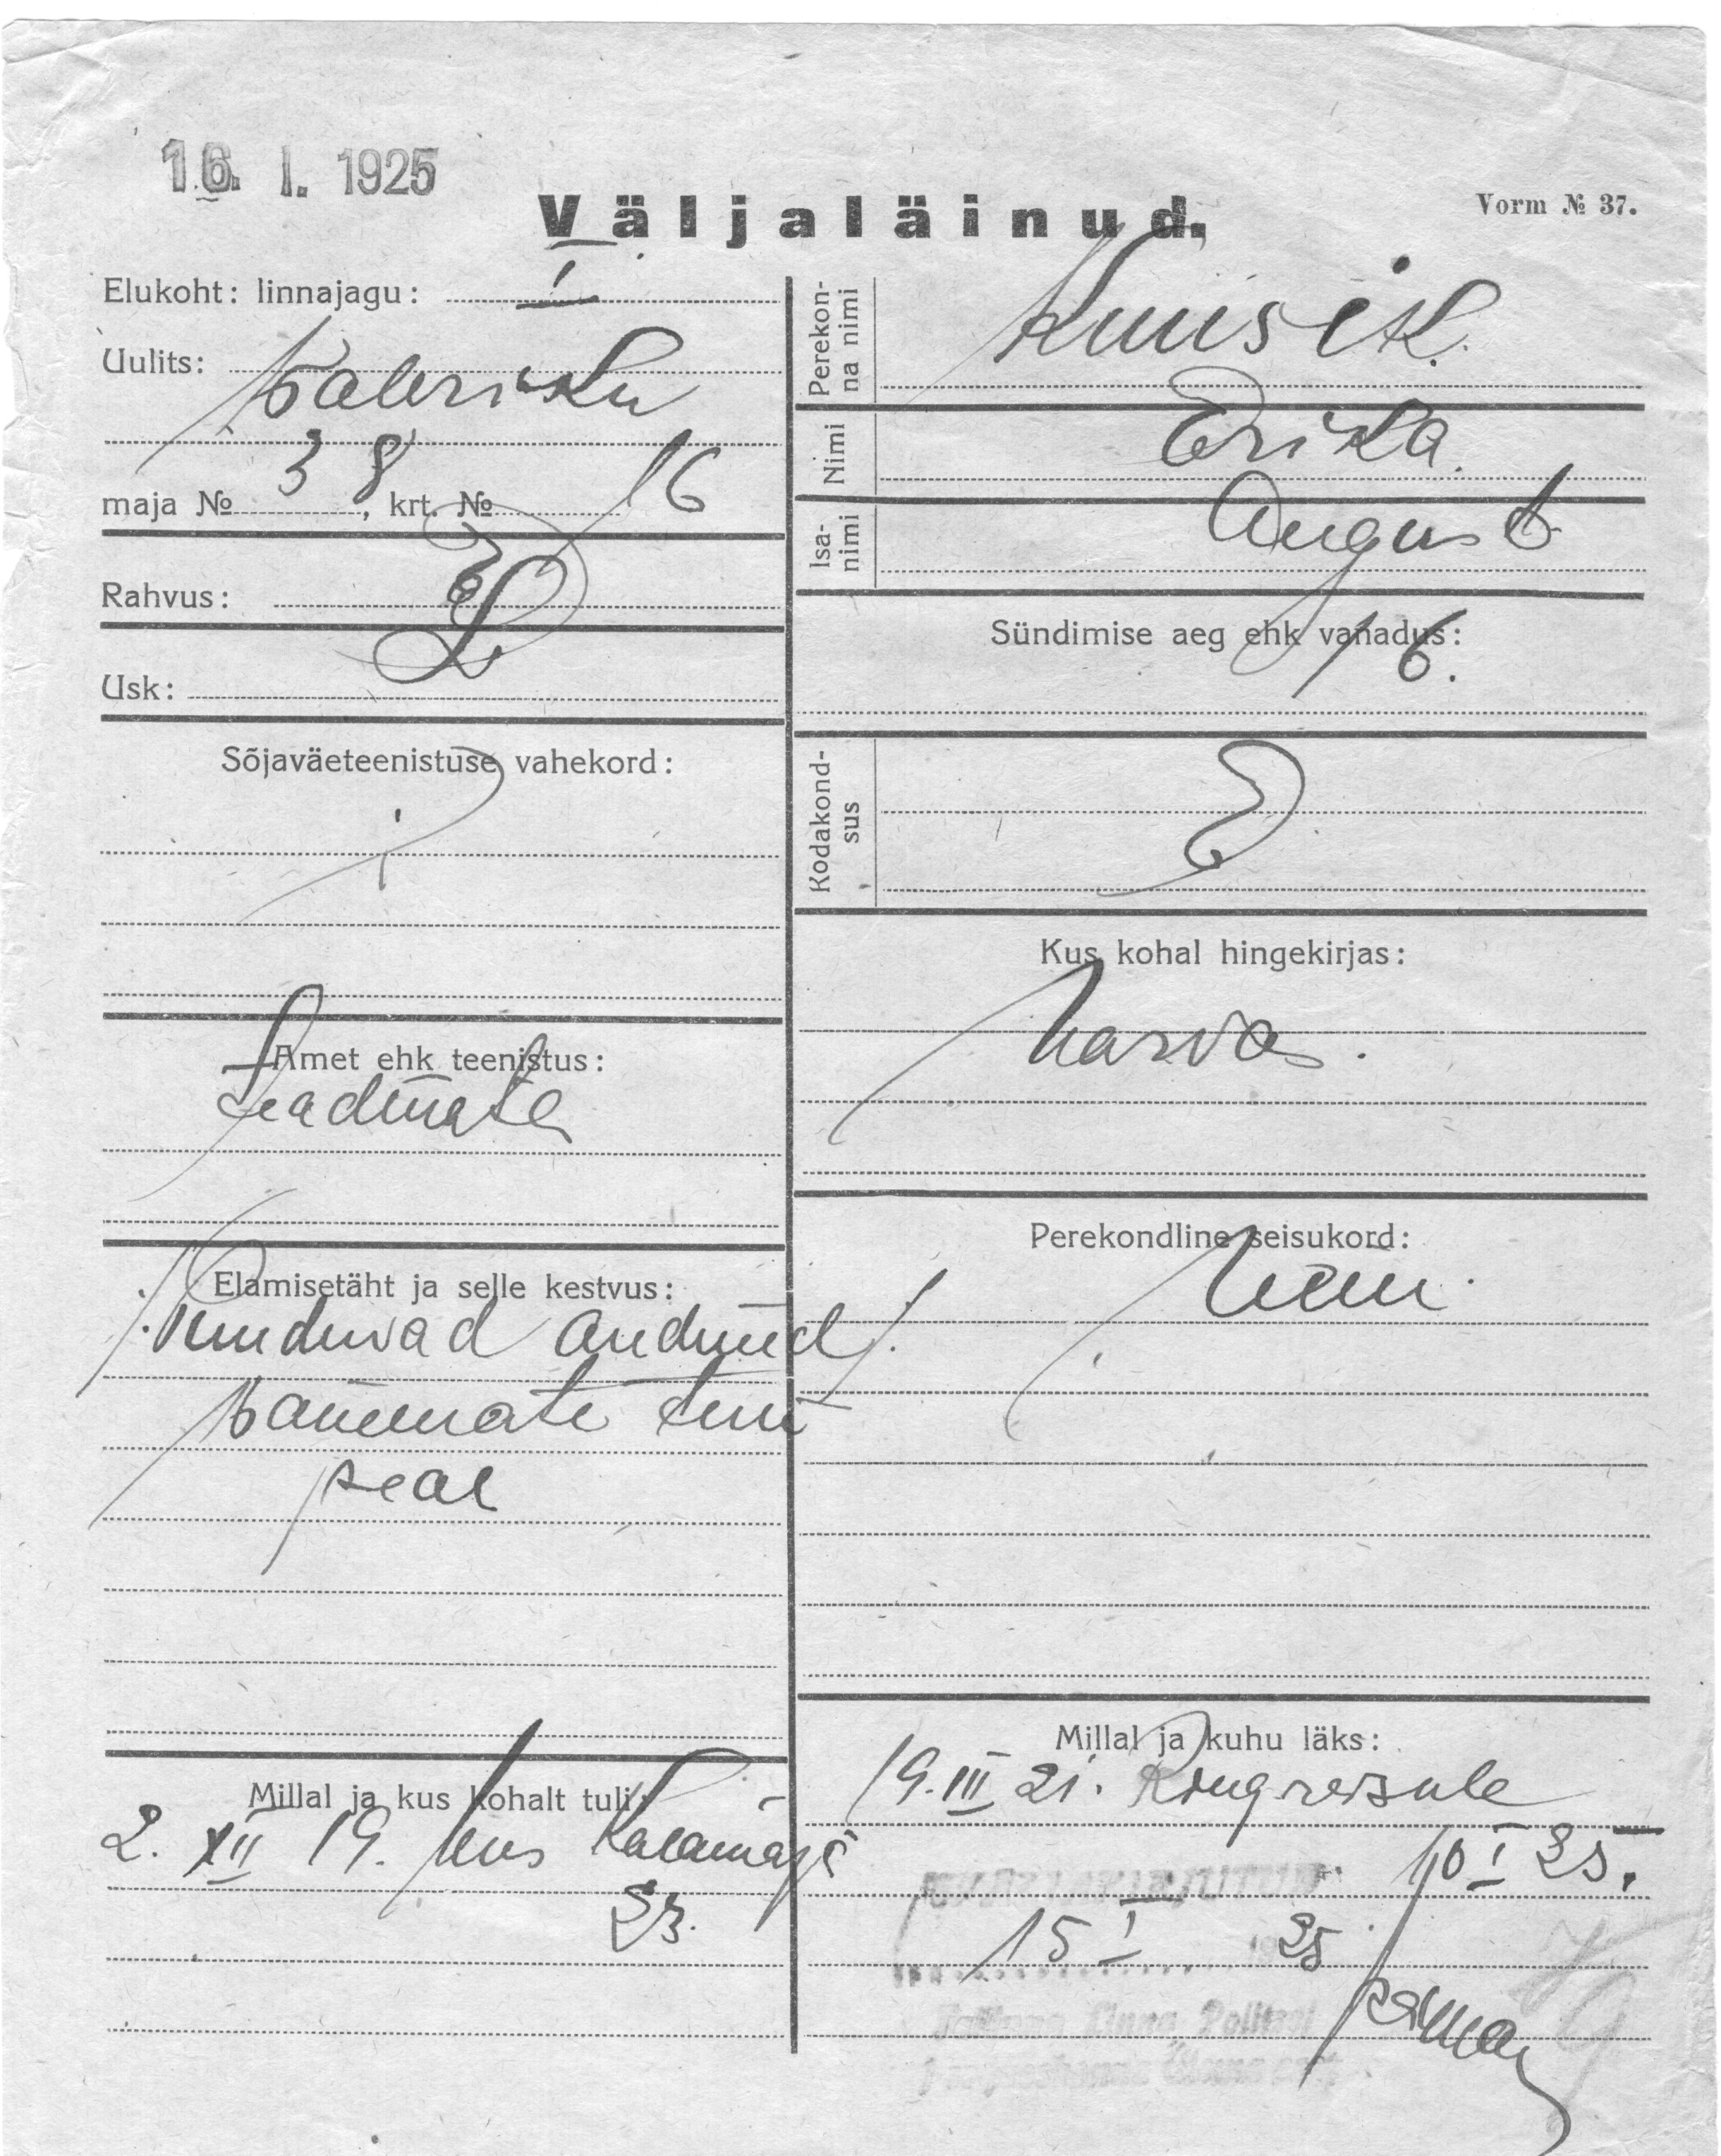 16. I. 1925
Väljaläinud.
Vorm № 37.
Elukoht: linnajagu: I
Uulits: Vabriku
maja № 38, krt. № 16
Rahvus: E
Usk: L
Sõjaväeteenistuse vahekord:
Amet ehk teenistus:
teadmata
Elamisetäht ja selle kestvus:
Puuduvad andmed
vanemate
peal
Millal ja kus kohalt tuli:
2. XII 19. Uus Kalamaja
23.
Perekonna nimi
Kuusik.
Nimi
Erika.
Isanimi
August
Sündimise aeg ehk vanadus:
16.
Kodakondsus
E
Kus kohal hingekirjas:
Narvas.
Perekondline seisukord:
Millal ja kuhu läks:
19. III 21.
10 I 25.
15 I 25
Tallinna Linna Politsei